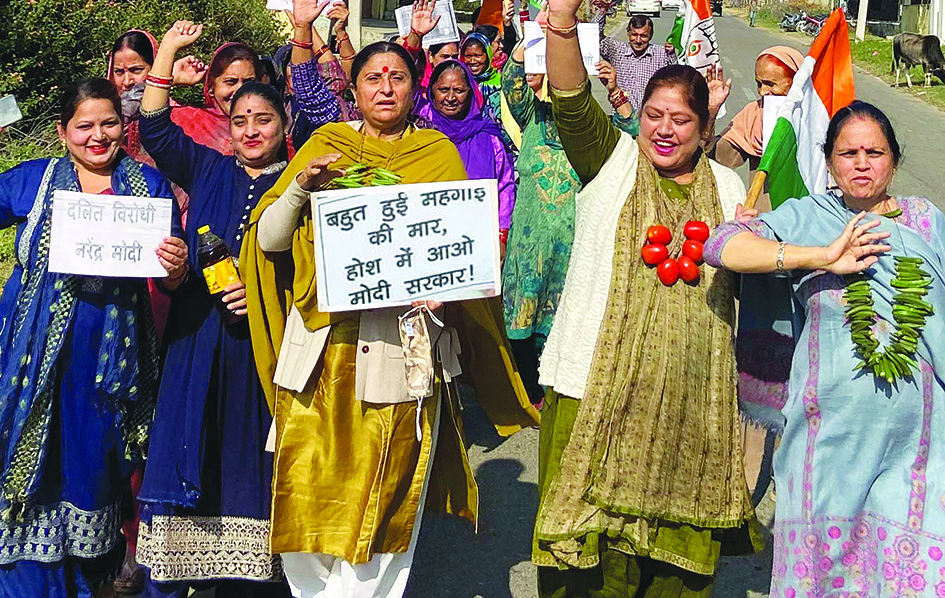 दलित विरोधी
नरेंद्र मोदी
बहुत हुई महगाई
की मार,
होश में आओ
मोदी सरकार!